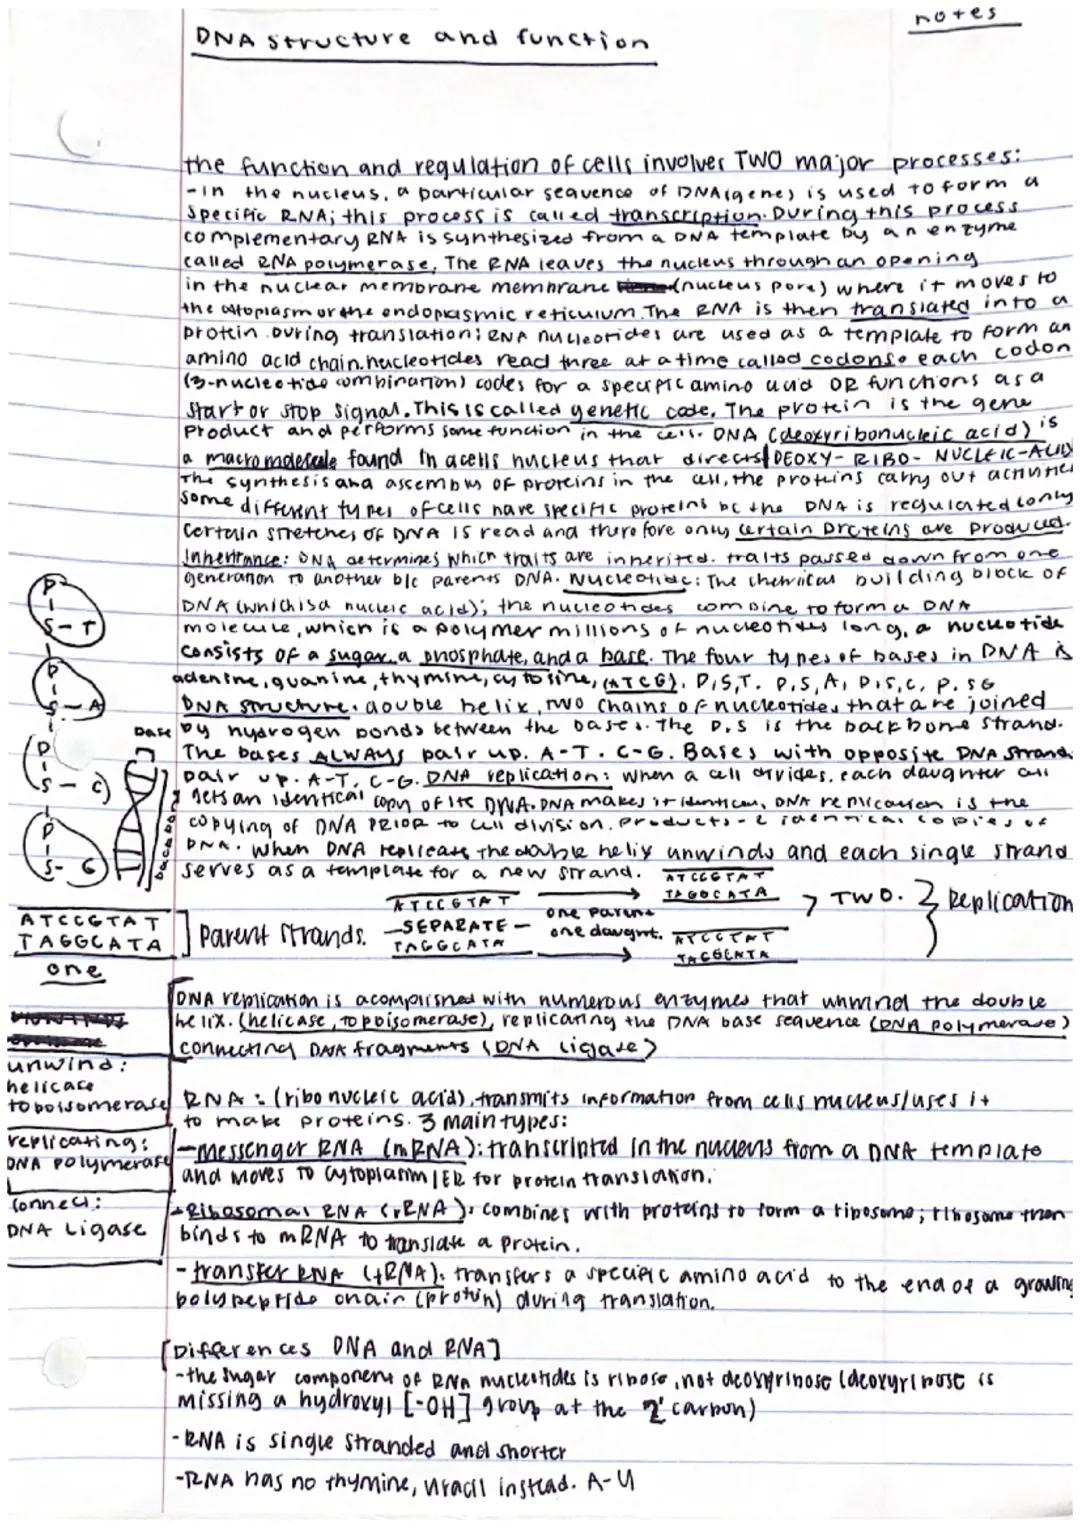 notes
DNA structure and function
the function and regulation of cells involves TWO major processes:
-in the nucleus, a particular sequence of DNA (gene) is used to form a
specific RNA; this process is called transcription. During this process
complementary RNA is synthesized from a DNA template by an enzyme
called RNA polymerase. The RNA leaves the nucleus through an opening
in the nuclear membrane membrane (nucleus pore) where it moves to
the cytoplasm or the endoplasmic reticulum. The RNA is then translated into a
protein. During translation: RNA nucleotides are used as a template to form an
amino acid chain. nucleotides read three at a time called codons. each codon
(3-nucleotide combination) codes for a specific amino acid OR functions as a
start or stop signal. This is called genetic code. The protein is the gene
product and performs some function in the cell. DNA (deoxyribonucleic acid) is
a macromolecule found in a cells nucleus that directs DEOXY-RIBO-NUCLEIC-ACID
The synthesis and assembly of proteins in the cell, the proteins carry out activities
some different types of cells have specific proteins bc the DNA is regulated (only
certain stretches of DNA is read and therefore only certain proteins are produced.
Inheritance: DNA determines which traits are inherited. traits passed down from one
generation to another b/c parents DNA. Nucleotide: The chemical building block of
DNA (which is a nucleic acid); the nucleotides combine to form a DNA
molecule, which is a polymer millions of nucleotides long, a nucleotide
consists of a sugar, a phosphate, and a base. The four types of bases in DNA is
adenine, guanine, thymine, cytosine, (ATCG). P,S,T. P,S,A, P,S,C, P.SG
DNA structure. double helix, two chains of nucleotides that are joined
by hydrogen bonds between the bases. The P,S is the backbone strand.
The bases ALWAYS pair up. A-T. C-G. Bases with opposite DNA strand
pair up. A-T, C-G. DNA replication: when a cell divides, each daughter cell
gets an identical copy of its DNA. DNA makes it identical, DNA replication is the
copying of DNA PRIOR to cell division. products- 2 identical copies of
DNA. when DNA replicates the double helix unwinds and each single strand
serves as a template for a new strand.
P
S-T
P
S-A
P
S-C
P
S-G
Base
backbone
ATCCGTAT
TAGGCATA
one
Parent Strands.
ATCCGTAT
-SEPARATE-
TAGGCATA
one parent
one daught.
ATCCGTAT
TAGGCATA
ATCCGTAT
TAGGCATA
TWO.
Replication
DNA replication is acomplished with numerous enzymes that unwind the double
helix. (helicase, topoisomerase), replicating the DNA base sequence (DNA polymerase)
connecting DNA fragments (DNA Ligase)
unwind:
helicase
topoisomerase
replicating:
DNA polymerase
connect:
DNA Ligase
RNA: (ribonucleic acid), transmits information from cells nucleus/uses it
to make proteins. 3 main types:
-messenger RNA (mRNA): transcripted in the nucleus from a DNA template
and moves to cytoplasm/ER for protein translation.
-Ribosomal RNA (rRNA): combines with proteins to form a ribosome; ribosome then
binds to mRNA to translate a protein.
-transfer RNA (tRNA): transfers a specific amino acid to the end of a growing
polypeptide chain (protein) during translation.
[Differences DNA and RNA]
-the sugar component of RNA nucleotides is ribose, not deoxyribose (deoxyribose is
missing a hydroxyl [-OH] group at the 2' carbon)
-RNA is single stranded and shorter
-RNA has no thymine, uracil instead. A-U